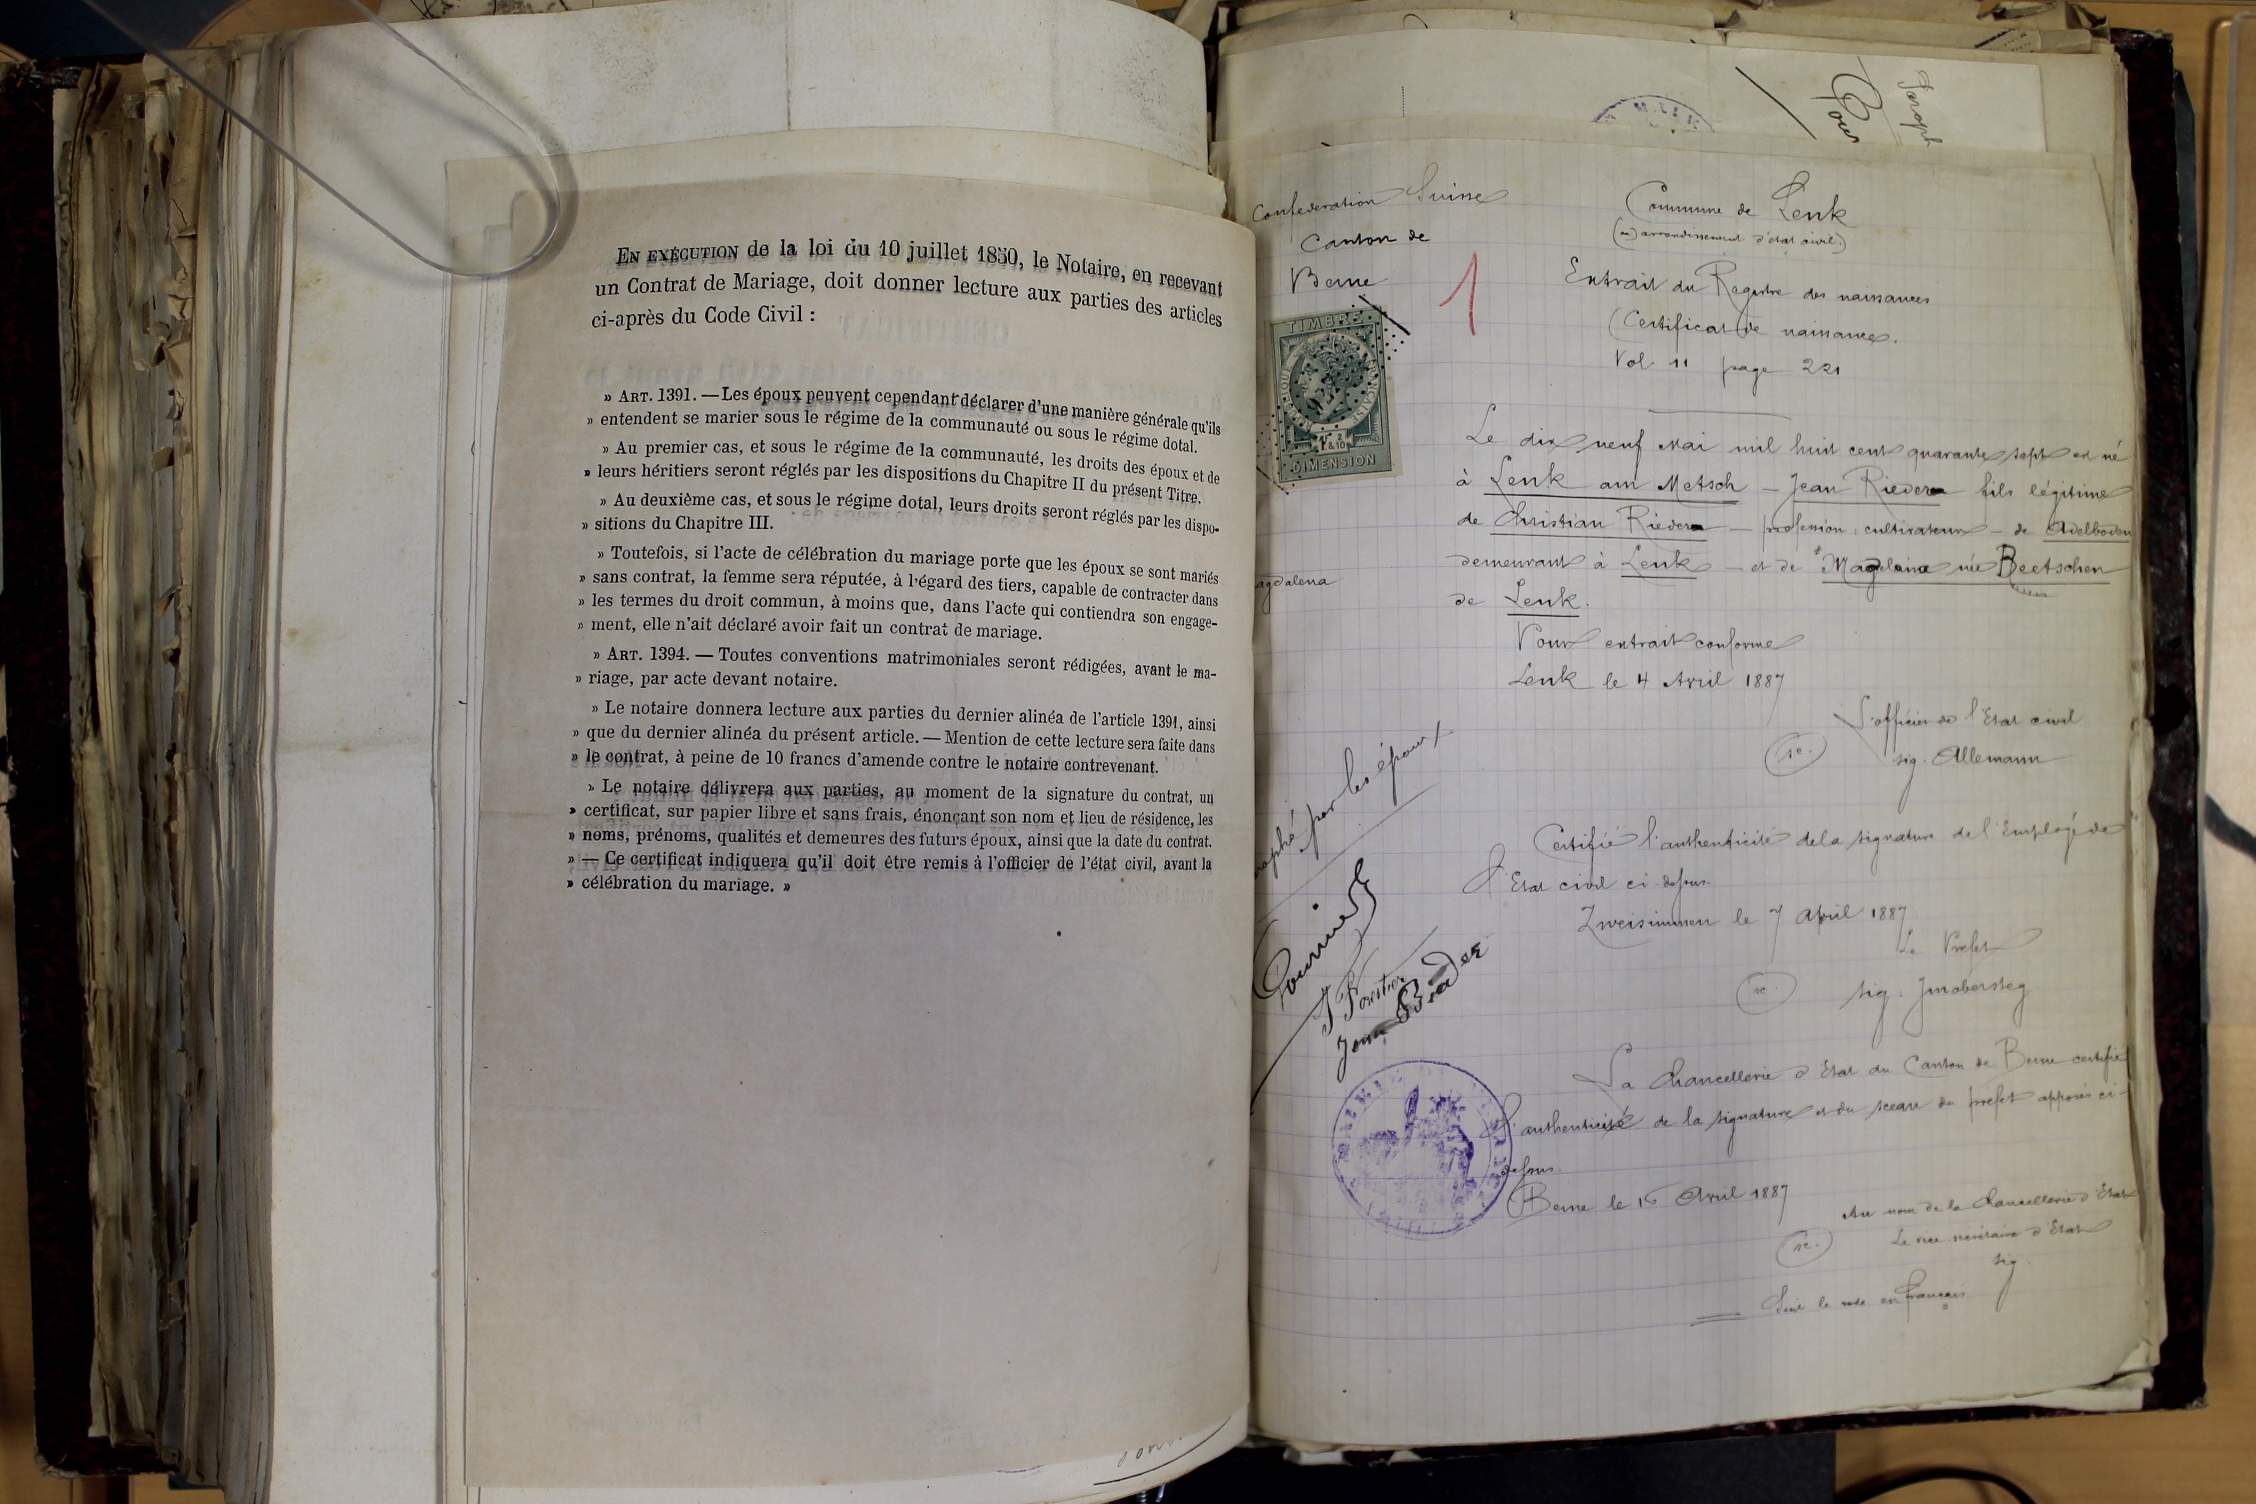 EN EXÉCUTION de la loi du 10 juillet 1850, le Notaire, en recevant
un Contrat de Mariage, doit donner lecture aux parties des articles
ci-après du Code Civil :
» ART. 1391. — Les époux peuvent cependant déclarer d'une manière générale qu'ils
» entendent se marier sous le régime de la communauté ou sous le régime dotal.
» Au premier cas, et sous le régime de la communauté, les droits des époux et de
» leurs héritiers seront réglés par les dispositions du Chapitre II du présent Titre.
» Au deuxième cas, et sous le régime dotal, leurs droits seront réglés par les dispo-
» sitions du Chapitre III.
» Toutefois, si l'acte de célébration du mariage porte que les époux se sont mariés
» sans contrat, la femme sera réputée, à l'égard des tiers, capable de contracter dans
» les termes du droit commun, à moins que, dans l'acte qui contiendra son engage-
» ment, elle n'ait déclaré avoir fait un contrat de mariage.
» ART. 1394. — Toutes conventions matrimoniales seront rédigées, avant le ma-
» riage, par acte devant notaire.
» Le notaire donnera lecture aux parties du dernier alinéa de l'article 1391, ainsi
» que du dernier alinéa du présent article. — Mention de cette lecture sera faite dans
» le contrat, à peine de 10 francs d'amende contre le notaire contrevenant.
» Le notaire délivrera aux parties, au moment de la signature du contrat, un
» certificat, sur papier libre et sans frais, énonçant son nom et lieu de résidence, les
» noms, prénoms, qualités et demeures des futurs époux, ainsi que la date du contrat.
» — Ce certificat indiquera qu'il doit être remis à l'officier de l'état civil, avant la
» célébration du mariage. »
Confederation Suisse
Canton de
Berne
1
TIMBRE
DIMENSION
Commune de Lenk
(ou arrondissement d'état civil)
Extrait du Registre des naissances
(Certificat de naissance.
Vol 11 page 221
Le dix neuf Mai mil huit cent quarante sept est né
à Lenk am Metsch — Jean Rieder fils légitime
de Christian Rieder — profession : cultivateur — de Adelboden
demeurant à Lenk — et de Magdeleine née Beetschen
de Lenk.
agdalena
Pour extrait conforme
Lenk le 4 Avril 1887
L'officier de l'Etat civil
sig. Allemann
Certifié l'authenticité de la signature de l'Employé de
l'Etat civil ci-dessus.
Zweisimmen le 7 April 1887
Le Préfet
sig. Jmobersteg
La Chancellerie d'Etat du Canton de Berne certifie
l'authenticité de la signature et du sceau du préfet apposés ci-
dessus.
Berne le 16 Avril 1887
Au nom de la Chancellerie d'Etat
Le vice secrétaire d'Etat
sig.
par les époux